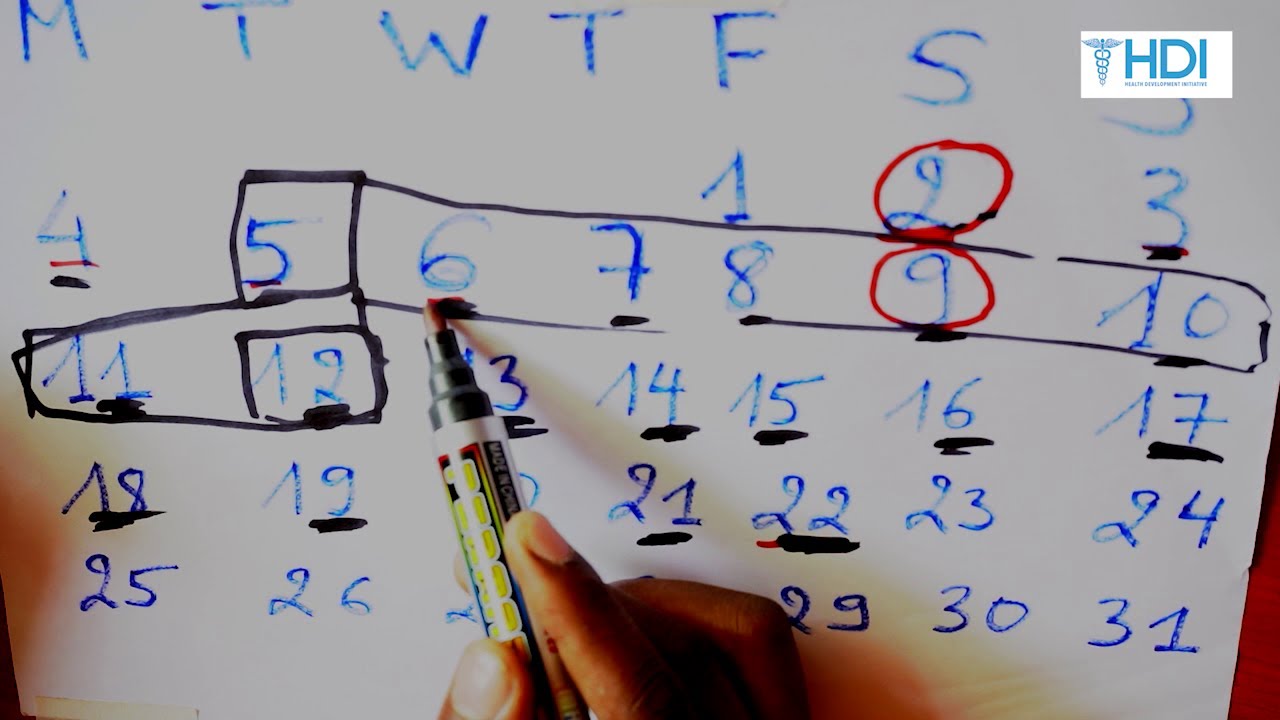 M T W T F S S
HDI
HEALTH DEVELOPMENT INITIATIVE
1 2 3
4 5 6 7 8 9 10
11 12 13 14 15 16 17
18 19 21 22 23 24
25 26 29 30 31
MADE IN CHINA